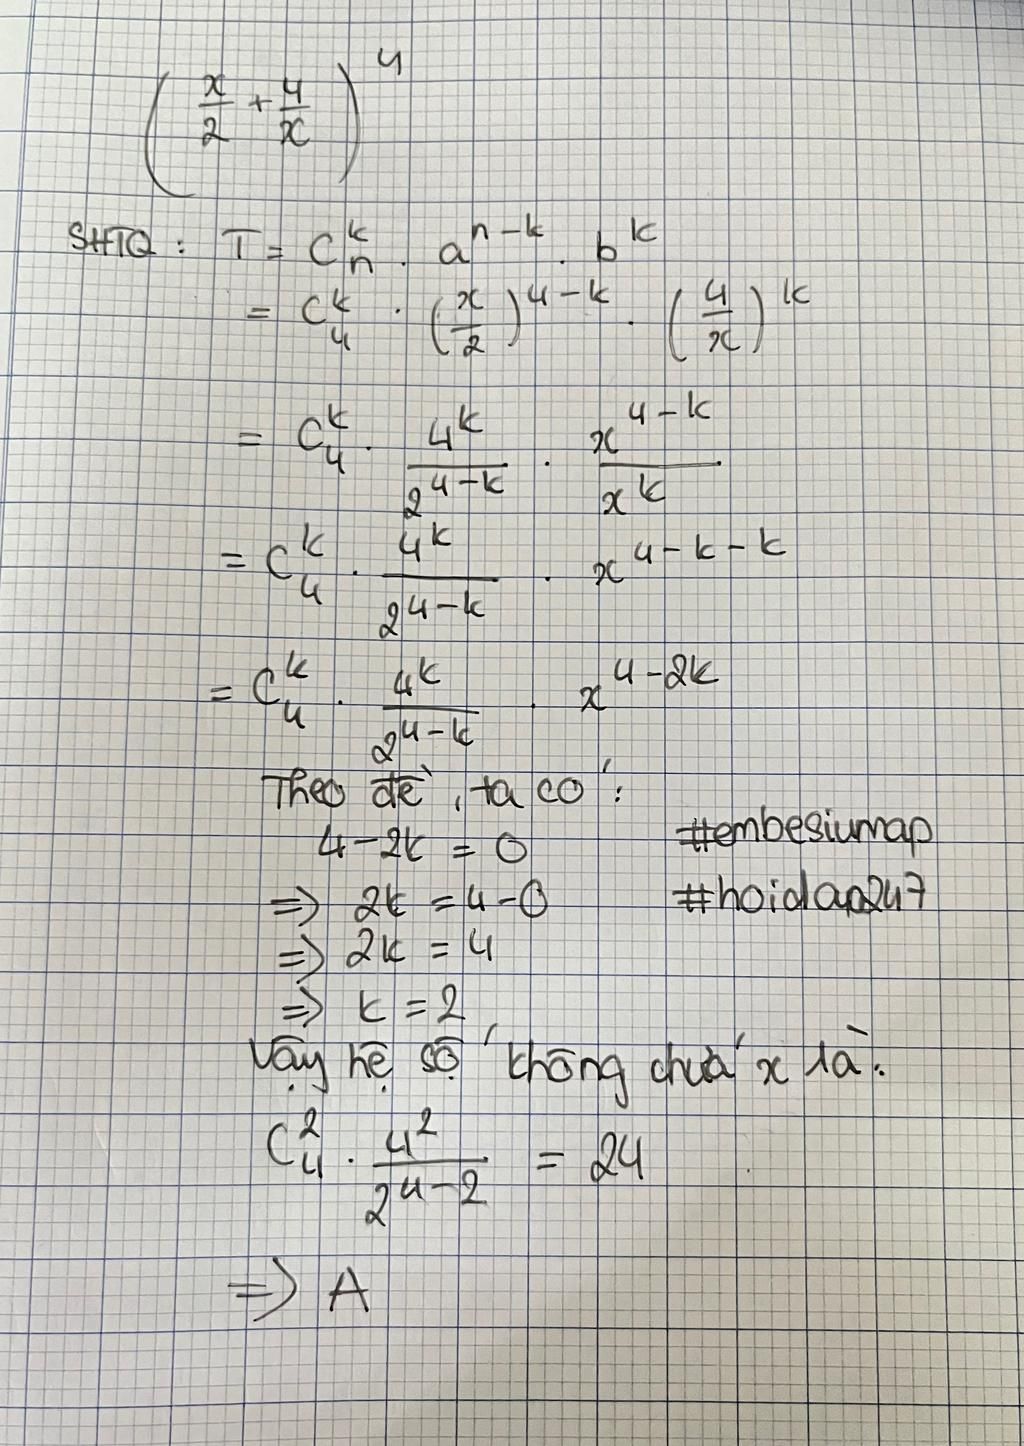 (x/2 + 4/x)^4
SHTQ : T = C_n^k . a^{n-k} . b^k
= C_4^k . (x/2)^{4-k} . (4/x)^k
= C_4^k . 4^k/2^{4-k} . x^{4-k}/x^k
= C_4^k . 4^k/2^{4-k} . x^{4-k-k}
= C_4^k . 4^k/2^{4-k} . x^{4-2k}
Theo đề, ta có :
4-2k = 0
#embesiumap
=> 2k = 4-0
#hoidap247
=> 2k = 4
=> k = 2
Vậy hệ số không chứa x là:
C_4^2 . 4^2/2^{4-2} = 24
=> A